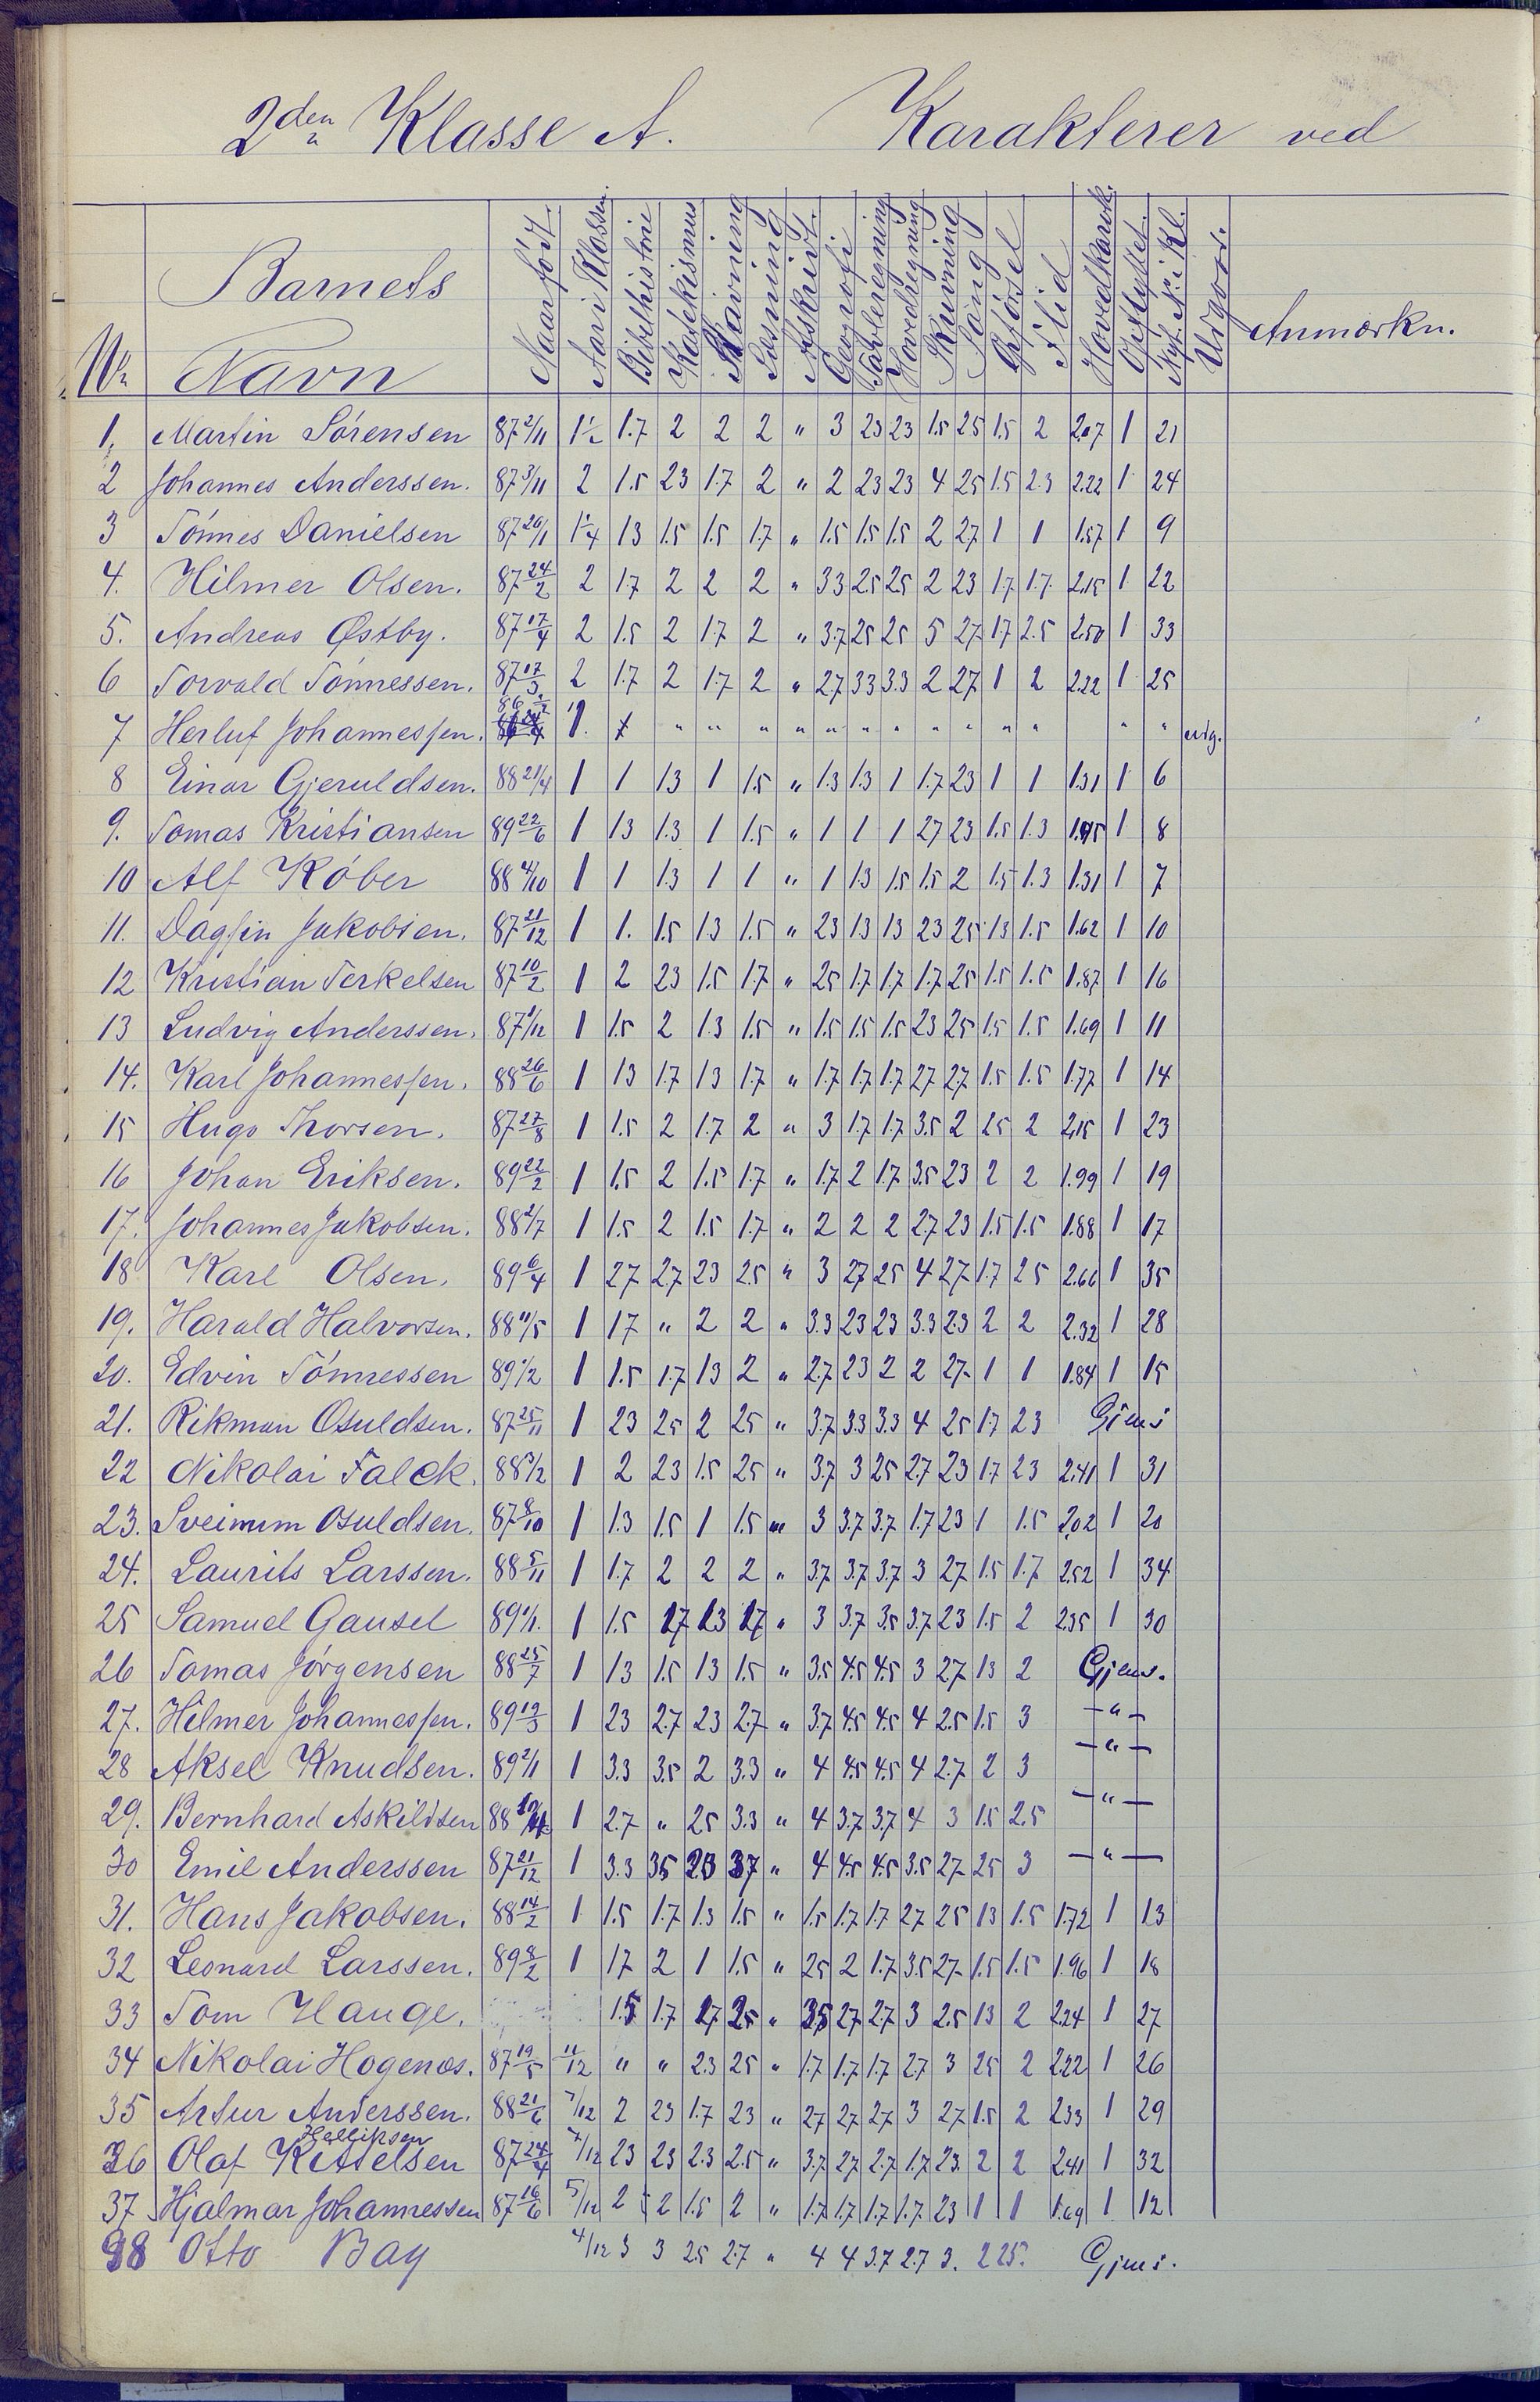 2den Klasse A. Karakterer ved
No Barnets Navn Naar født. Aar i Klassen Bibelhistorie Katekismus Stavning Læsning Afskrivt. Geografi Tavleregning Hovedregning Skrivning Sang Opførsel Flid Hovedkarak. Opflyttet. Nyt No i Kl. Udgaar. Anmærkn.
1. Martin Sørensen 87 2/11 1½ 1.7 2 2 2 " 3 23 23 1.5 25 1.5 2 2.07 1 21
2 Johannes Anderssen. 87 3/11 2 1.5 23 1.7 2 " 2 23 23 4 25 1.5 2.3 2.22 1 24
3 Tønnes Danielsen 87 20/1 1¼ 13 1.5 1.5 1.7 " 1.5 1.5 1.5 2 27 1 1 1.57 1 9
4. Hilmer Olsen. 87 24/2 2 1.7 2 2 2 " 33 2.5 25 2 23 1.7 1.7 2.15 1 22
5. Andreas Østby. 87 17/4 2 1.5 2 1.7 2 " 3.7 25 25 5 27 1.7 2.5 2.50 1 33
6 Torvald Tønnessen. 87 17/3 2 1.7 2 1.7 2 " 27 33 3.3 2 27 1 2 2.22 1 25
7 Herluf Johannessen. 86 1. " " " " " " " " " " " " " udg.
8 Einar Gjeruldsen. 88 21/4 1 1 13 1 1.5 " 1.3 1.3 1 1.7 23 1 1 1.31 1 6
9. Tomas Kristiansen 89 22/6 1 13 1.3 1 1.5 " 1 1 1 27 23 1.5 1.3 1.45 1 8
10 Alf Køber 88 4/10 1 1 13 1 1 " 1 13 1.5 1.5 2 1.5 1.3 1.31 1 7
11. Dagfin Jakobsen. 87 21/12 1 1. 1.5 13 1.5 " 23 13 13 23 25 13 1.5 1.62 1 10
12 Kristian Terkelsen 87 10/2 1 2 23 1.5 1.7 " 25 1.7 1.7 1.7 25 1.5 1.5 1.87 1 16
13 Ludvig Anderssen. 87 1/12 1 1.5 2 1.3 1.5 " 1.5 1.5 1.5 23 25 1.5 1.5 1.69 1 11
14. Karl Johannessen. 88 26/6 1 13 1.7 13 1.7 " 1.7 1.7 1.7 27 27 1.5 1.5 1.77 1 14
15 Hugo Thorsen. 87 27/8 1 1.5 2 1.7 2 " 3 1.7 1.7 3.5 2 25 2 2.15 1 23
16 Johan Eriksen. 89 22/2 1 1.5 2 1.5 1.7 " 1.7 2 1.7 3.5 23 2 2 1.99 1 19
17. Johannes Jakobsen. 88 2/7 1 1.5 2 1.5 1.7 " 2 2 2 27 23 1.5 1.5 1.88 1 17
18 Karl Olsen. 89 6/4 1 27 27 23 2.5 " 3 27 25 4 27 1.7 25 2.66 1 35
19. Harald Halvorsen. 88 11/5 1 17 " 2 2 " 3.3 23 23 3.3 2.3 2 2 2.32 1 28
20. Edvin Tønnessen 89 1/2 1 1.5 1.7 13 2 " 2.7 23 2 2 27 1 1 1.84 1 15
21. Rikman Osuldsen. 87 25/11 1 23 25 2 25 " 3.7 3.3 3.3 4 25 1.7 23 Gjens
22 Nikolai Falck. 88 3/2 1 2 23 1.5 25 " 3.7 3 25 2.7 23 1.7 23 2.41 1 31
23. Sveinum Osuldsen. 87 8/10 1 1.3 1.5 1 1.5 " 3 3.7 3.7 1.7 23 1 1.5 2.02 1 20
24. Laurits Larssen. 88 5/11 1 1.7 2 2 2 " 3.7 3.7 3.7 3 27 1.5 1.7 2.52 1 34
25 Samuel Gausel 89 1/1. 1 1.5 17 13 17 " 3 3.7 3.5 3.7 23 1.5 2 2.35 1 30
26 Tomas Jørgensen 88 25/7 1 13 1.5 13 1.5 " 3.5 4.5 4.5 3 27 13 2 Gjens.
27. Hilmer Johannessen. 89 19/3 1 23 2.7 23 2.7 " 3.7 4.5 4.5 4 2.5 1.5 3 — " —
28 Aksel Knudsen. 89 2/1 1 3.3 3.5 2 3.3 " 4 4.5 4.5 4 2.7 2 3 — " —
29. Bernhard Askildsen 88 1 2.7 " 25 3.3 " 4 3.7 3.7 4 3 1.5 2.5 — " —
30 Emil Anderssen 87 21/12 1 3.3 35 23 37 " 4 4.5 4.5 3.5 27 25 3 — " —
31. Hans Jakobsen. 88 14/2 1 1.5 1.7 1.3 1.5 " 1.5 1.7 1.7 27 25 13 1.5 1.72 1 13
32 Leonard Larssen. 89 8/2 1 17 2 1 1.5 " 25 2 1.7 3.5 27 1.5 1.5 1.96 1 18
33 Tom Hauge. 1.5 1.7 27 25 " 35 27 2.7 3 2.5 13 2 2.24 1 27
34 Nikolai Hogenæs. 87 19/5 11/12 " " 2.3 25 " 1.7 1.7 1.7 2.7 3 25 2 2.22 1 26
35 Artur Anderssen. 88 21/6 7/12 2 23 1.7 23 " 27 27 27 3 27 1.5 2 2.33 1 29
Helliksen
36 Olaf Kittelsen 87 24/4 7/12 23 23 2.3 2.5 " 3.7 27 2.7 1.7 23. 2 2 2.41 1 32
37 Hjalmar Johannessen 87 16/6 5/12 2 2 1.5 2 " 1.7 1.7 1.7 1.7 23 1 1 1.69 1 12
38 Otto Bay 4/12 3 3 25 2.7 " 4 4 3.7 2.7 3. 2 25. Gjens.